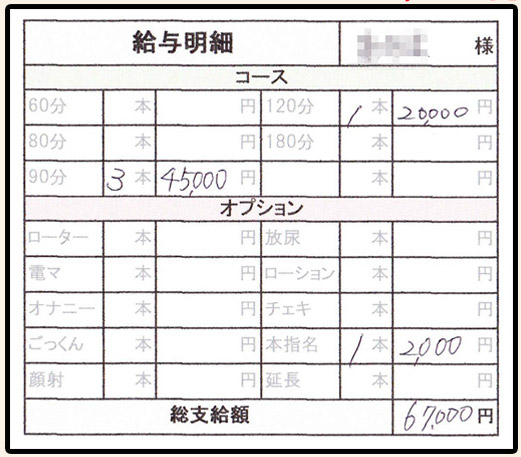 給与明細 様
コース
60分 本 円 120分 1 本 20,000 円
80分 本 円 180分 本 円
90分 3 本 45,000 円 本 円
オプション
ローター 本 円 放尿 本 円
電マ 本 円 ローション 本 円
オナニー 本 円 チェキ 本 円
ごっくん 本 円 本指名 1 本 2,000 円
顔射 本 円 延長 本 円
総支給額 67,000 円